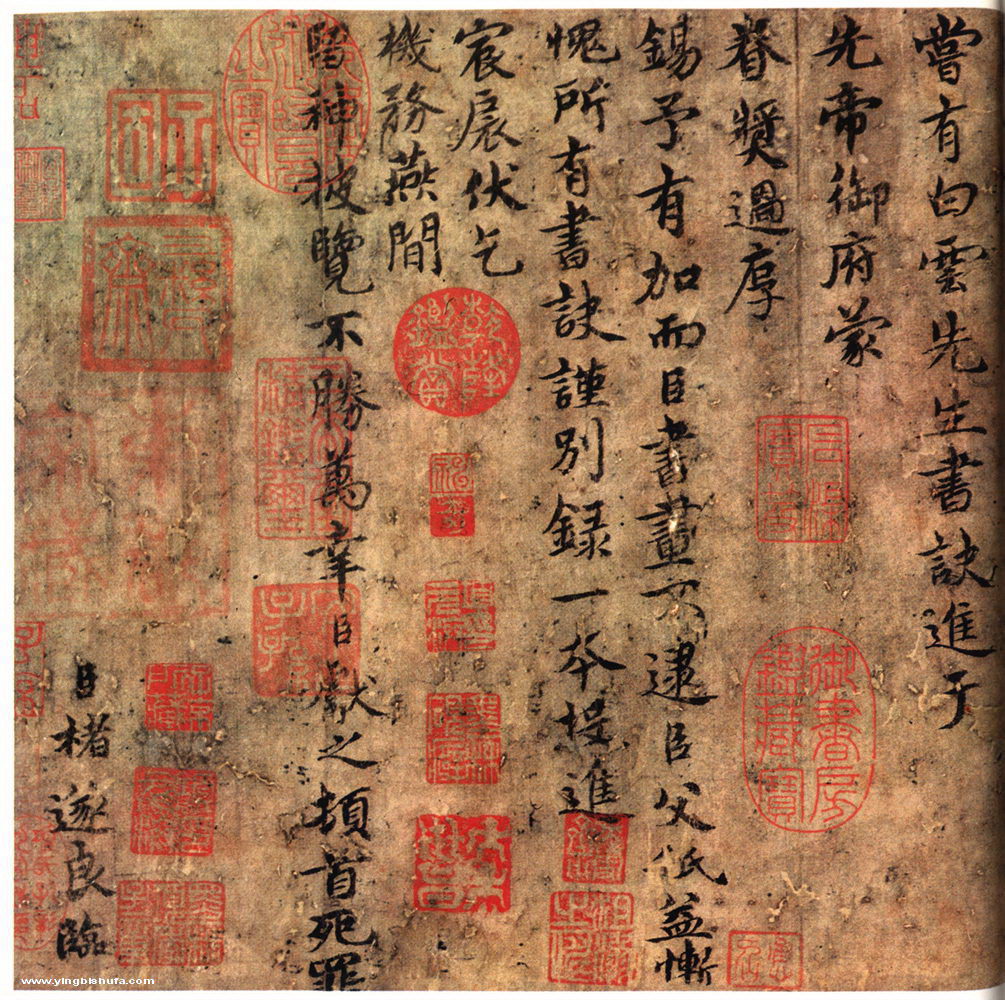 嘗有白雲先生書訣進于
先帝御府蒙
眷獎過厚
錫予有加而臣書畫不逮臣父祇益慚
愧所有書訣謹別録一本投進
宸扆伏乞
機務燕間
留神披覽不勝萬幸臣獻之頓首死罪
臣褚遂良臨
石渠寶笈
御書房鑑藏寶
乾隆鑑賞
www.yingbishufa.com